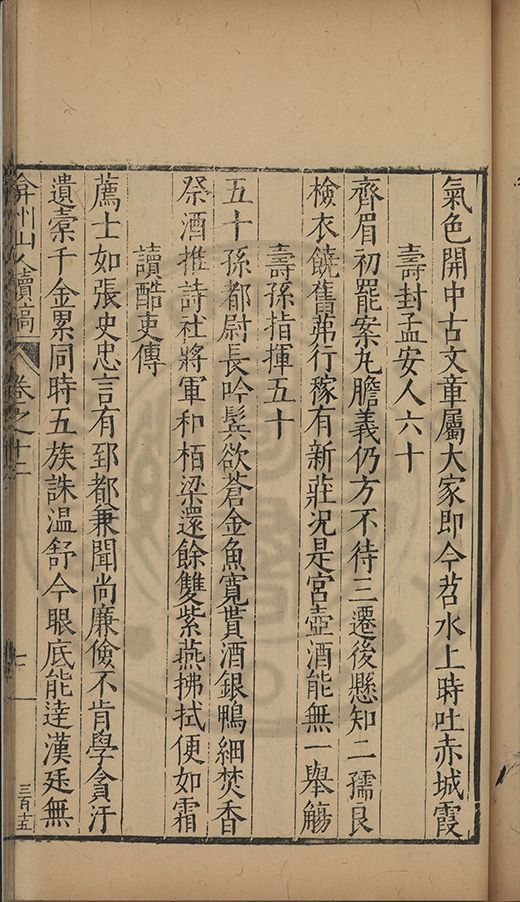 氣色開中古文章屬大家即今苕水上時吐赤城霞
壽封孟安人六十
齊眉初罷案丸膽義仍方不待三遷後懸知二孺良
檢衣饒舊茀行稼有新莊況是宮壺酒能無一舉觴
壽孫指揮五十
五十孫都尉長吟鬂欲蒼金魚寛貰酒銀鴨細焚香
祭酒推詩社將軍和栢梁還餘雙紫燕拂拭便如霜
讀酷吏傳
薦士如張史忠言有郅都兼聞尚廉儉不肯學貪汙
遺槖千金累同時五族誅溫舒今眼底能達漢廷無
弇州山人續稿
卷之十二
七